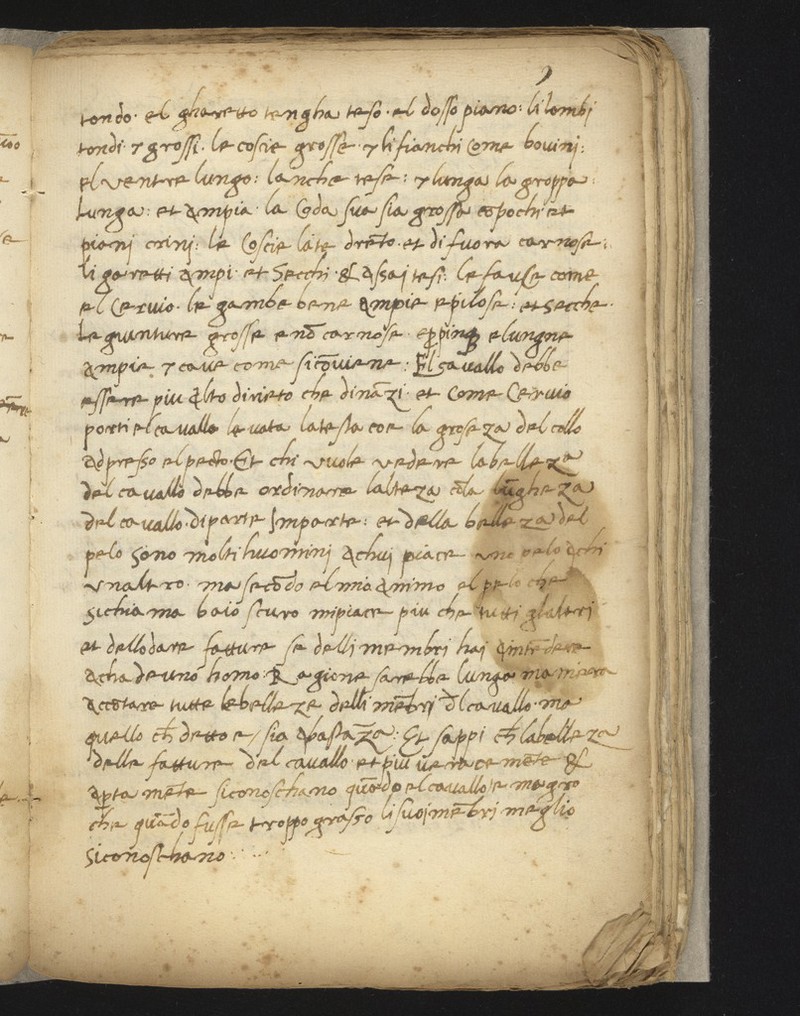 tondo · el gharetto tengha teso · el dosso piano : li lombi
tondi & grossi · le coscie grosse · & li fianchi come bouini :
el ventre lungo : lanche tese : & lunga la groppa :
Lunga : et ampia · la Coda sua sia grossa cō pochi et
piani crini : le Coscie late dreto · et di fuora carnose :
li garetti ampi · et Secchi · & assai tesi : le fause come
el Ceruio · le gambe bene ampie e pilose : et secche ·
Le giunture grosse e nō carnose · e lungne
ampie & caue come si cōuiene : El cauallo debbe
essere piu alto dirieto che dināzi : et Come Ceruio
porti el cauallo leuata la testa coe la groseza del collo
adpresso el pecto · Et chi vuole vedere la belleza
del cauallo debbe ordinare lalteza cōla lūgheza
del cauallo · di parte Imparte : et della belleza del
pelo sono molti huomini achui piace uno pelo achi
vnaltro · ma secōdo el mio animo el pelo che
si chiama baio scuro mi piace piu che tutti glaltri
et dellodare fatture se delli membri hai aintēdere
acha deuno homo : Ragione sarebbe lunga
accōtare tutte le belleze delli mēbri dl cauallo · ma
quello ch̄ detto e / sia abastāza : Et sappi ch̄ la belleza
delle fatture del cauallo · et piu ueracemēte &
apta mēte si conoschano quādo el cauallo e magro
che quādo fusse troppo grasso li suoi mēbri meglio
si conoschano :